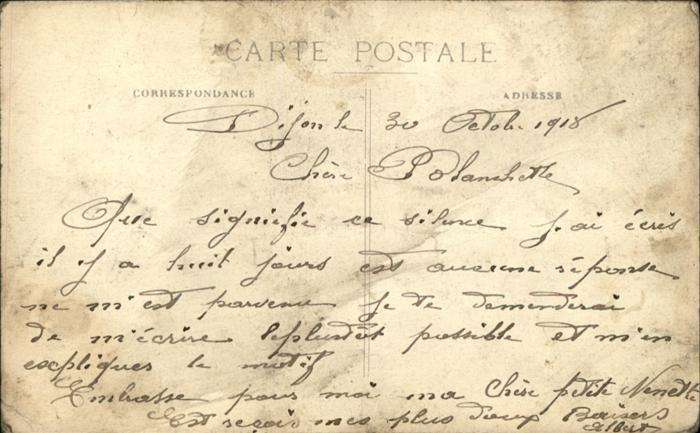 CARTE POSTALE
CORRESPONDANCE ADRESSE
Dijon le 30 Octobre 1918
Chère Blanchette
Que signifie ce silence j'ai écris
il y a huit jours est aucune réponse
ne m'est parvenu je te demanderai
de m'écrire leplustôt possible et m'en
expliques le motif
Embrasse pour moi ma Chère petite Nenette
Est reçois mes plus doux Baisers
Albert